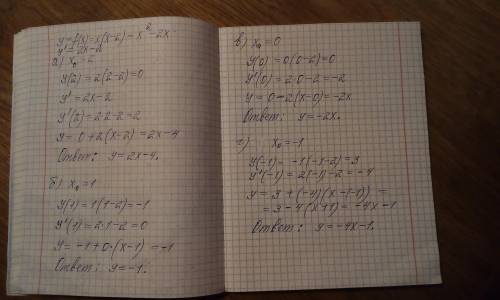 y=f(x)=x(x-2)=x²-2x
y'=2x-2
а) x₀=2
y(2)=2(2-2)=0
y'=2x-2
y'(2)=2·2-2=2
y=0+2(x-2)=2x-4
Ответ: y=2x-4.
б) x₀=1
y(1)=1(1-2)=-1
y'(1)=2·1-2=0
y=-1+0·(x-1)=-1
Ответ: y=-1.
в) x₀=0
y(0)=0(0-2)=0
y'(0)=2·0-2=-2
y=0-2(x-0)=-2x
Ответ: y=-2x.
г) x₀=-1
y(-1)=-1(-1-2)=3
y'(-1)=2(-1)-2=-4
y=3+(-4)(x-(-1))=
=3-4(x+1)=-4x-1
Ответ: y=-4x-1.